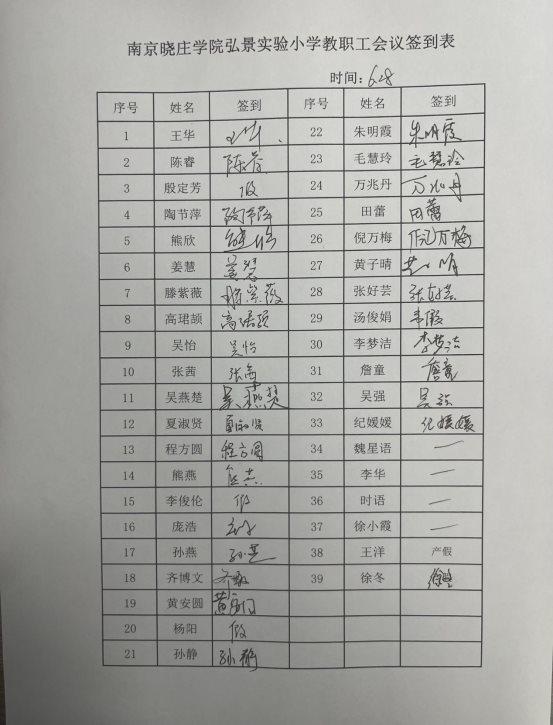 南京晓庄学院弘景实验小学教职工会议签到表
时间：6.28
序号 姓名 签到 序号 姓名 签到
1 王华 22 朱明霞 朱明霞
2 陈睿 陈睿 23 毛慧玲 毛慧玲
3 殷定芳 假 24 万兆丹 万兆丹
4 陶节萍 陶节萍 25 田蕾 田蕾
5 熊欣 26 倪万梅 倪万梅
6 姜慧 姜慧 27 黄子晴
7 滕紫薇 滕紫薇 28 张好芸 张好芸
8 高珺颉 高珺颉 29 汤俊娟 事假
9 吴怡 吴怡 30 李梦洁 李梦洁
10 张茜 张茜 31 詹童 詹童
11 吴燕楚 吴燕楚 32 吴强 吴强
12 夏淑贤 33 纪媛媛 纪媛媛
13 程方圆 程方圆 34 魏星语 —
14 熊燕 35 李华 —
15 李俊伦 假 36 时语 —
16 庞浩 37 徐小霞 —
17 孙燕 38 王洋 产假
18 齐博文 39 徐冬
19 黄安圆
20 杨阳 假
21 孙静 孙静